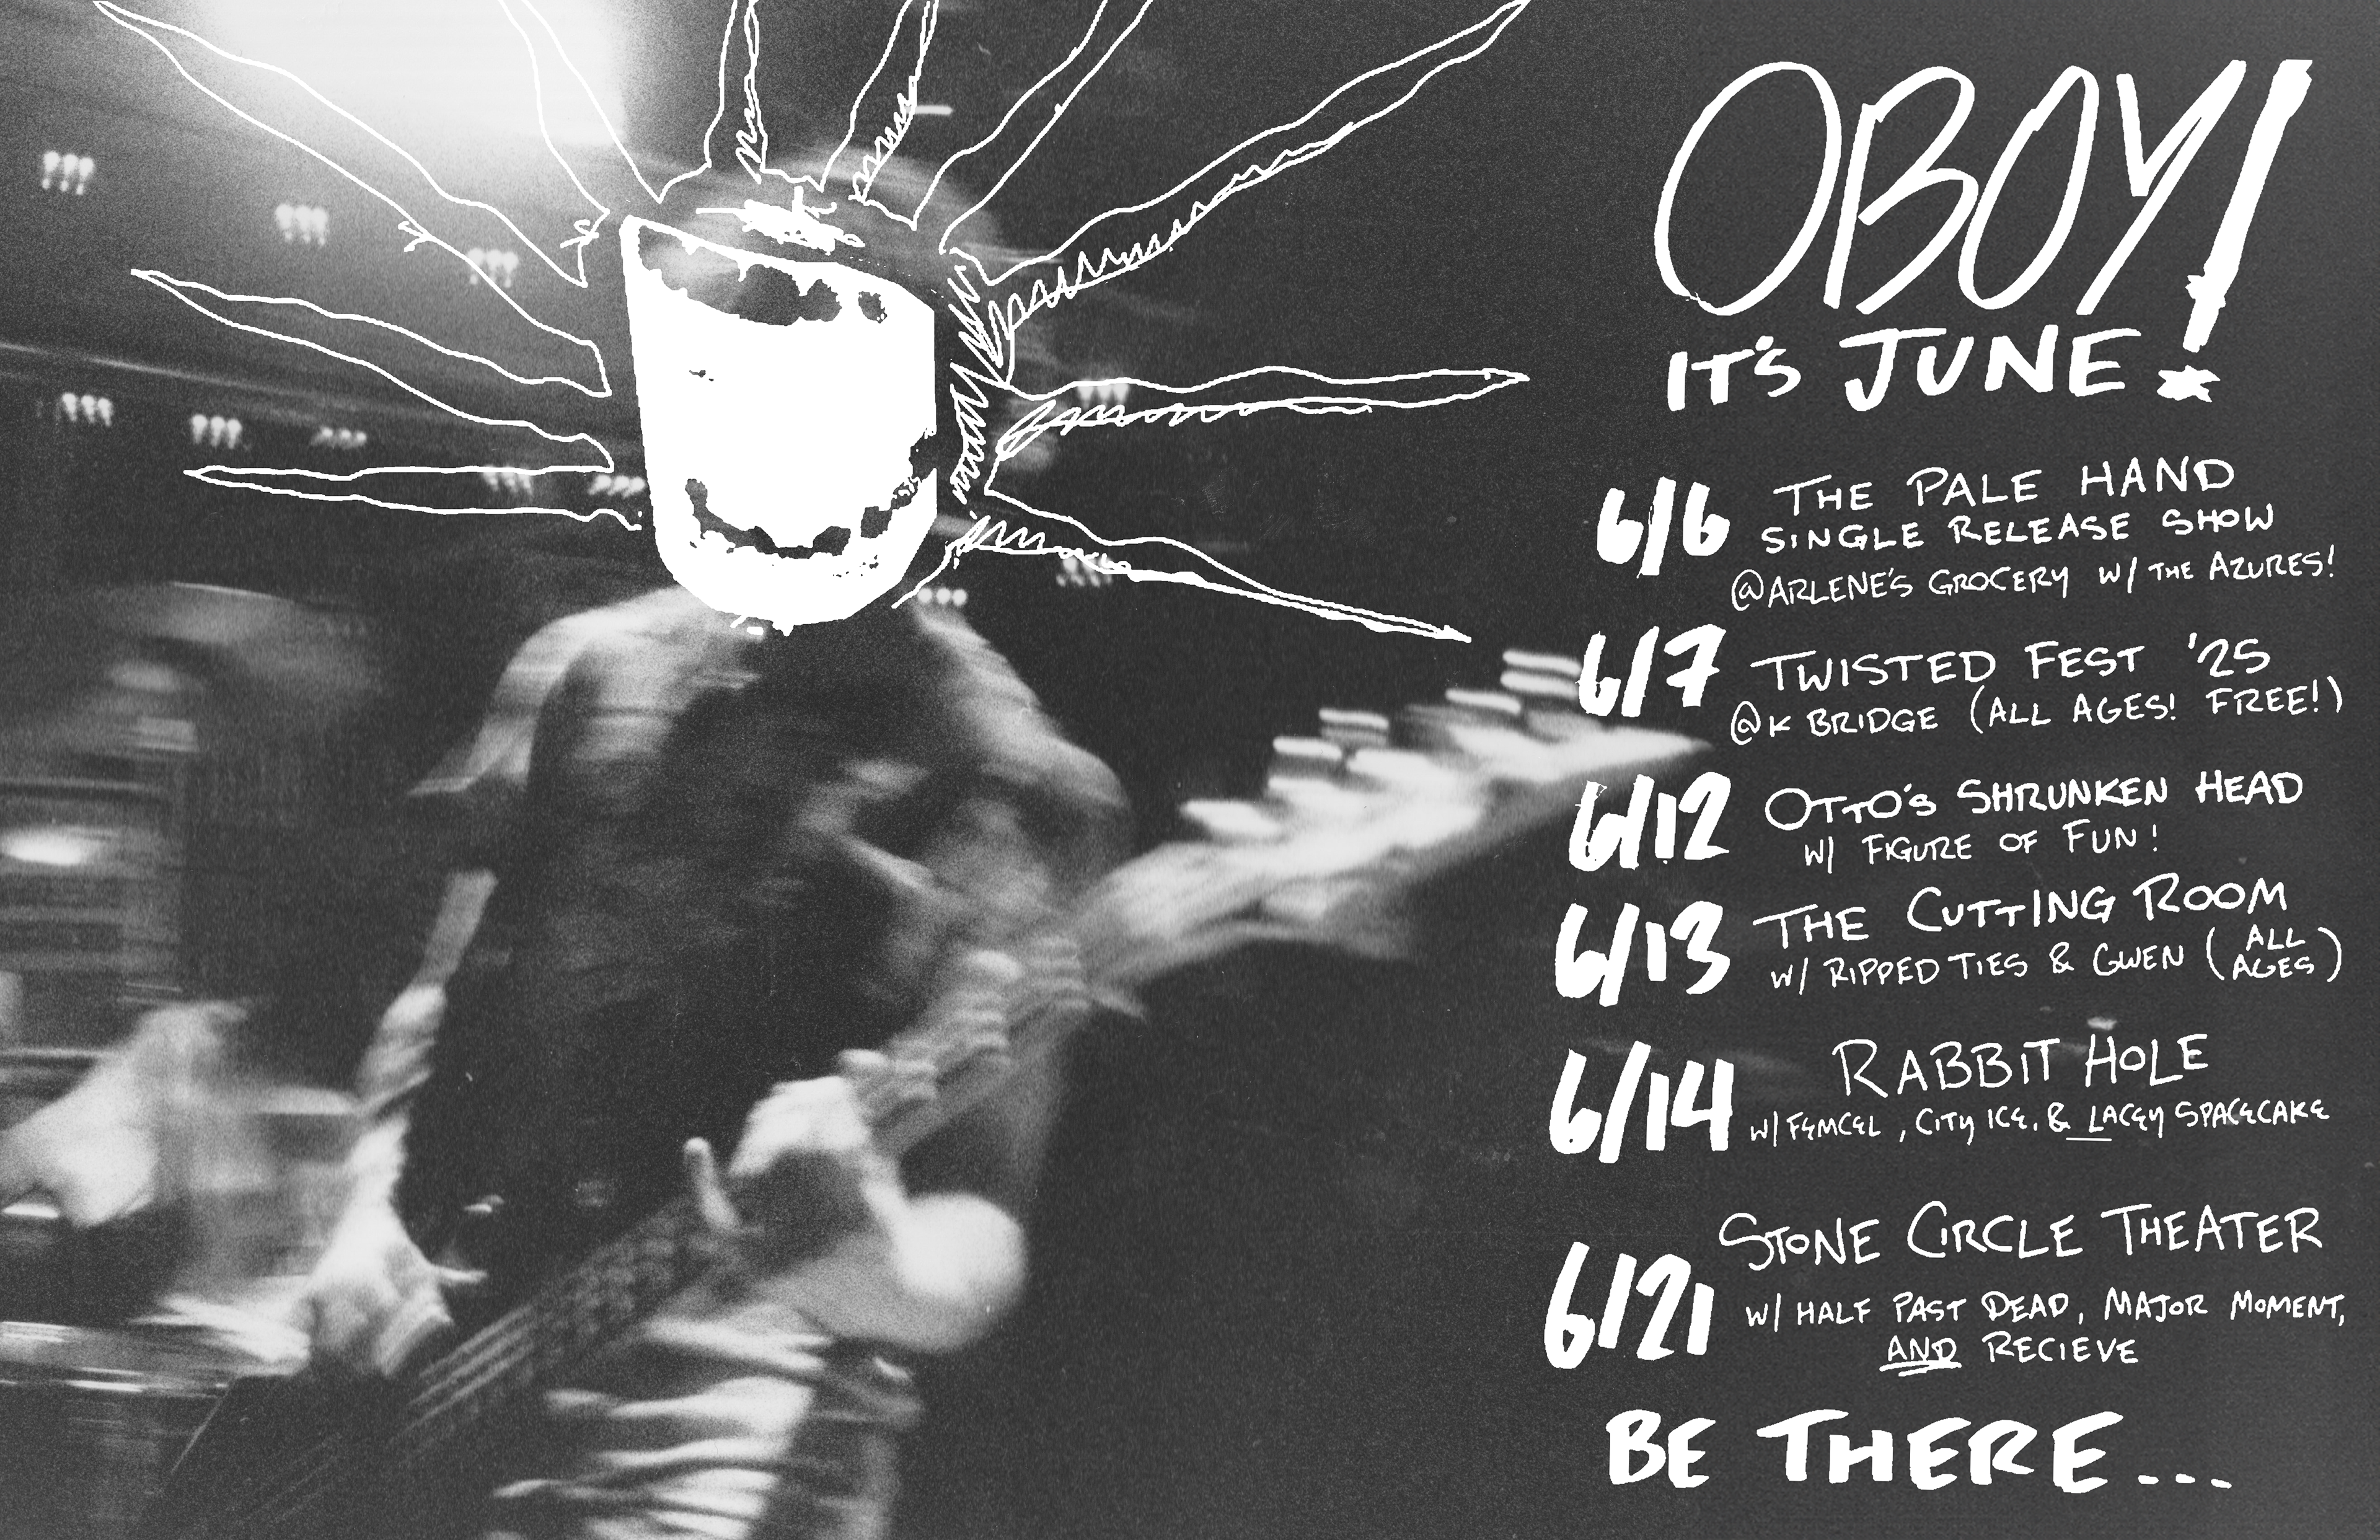 OBOY!
IT'S JUNE
6/6 THE PALE HAND
SINGLE RELEASE SHOW
@ARLENE'S GROCERY W/ THE AZURES!
6/7 TWISTED FEST '25
@K BRIDGE (ALL AGES! FREE!)
6/12 OTTO'S SHRUNKEN HEAD
W/ FIGURE OF FUN!
6/13 THE CUTTING ROOM
W/ RIPPED TIES & GWEN (ALL AGES)
6/14 RABBIT HOLE
W/ FEMCEL, CITY ICE, & LACEY SPACECAKE
6/21 STONE CIRCLE THEATER
W/ HALF PAST DEAD, MAJOR MOMENT,
AND RECIEVE
BE THERE...